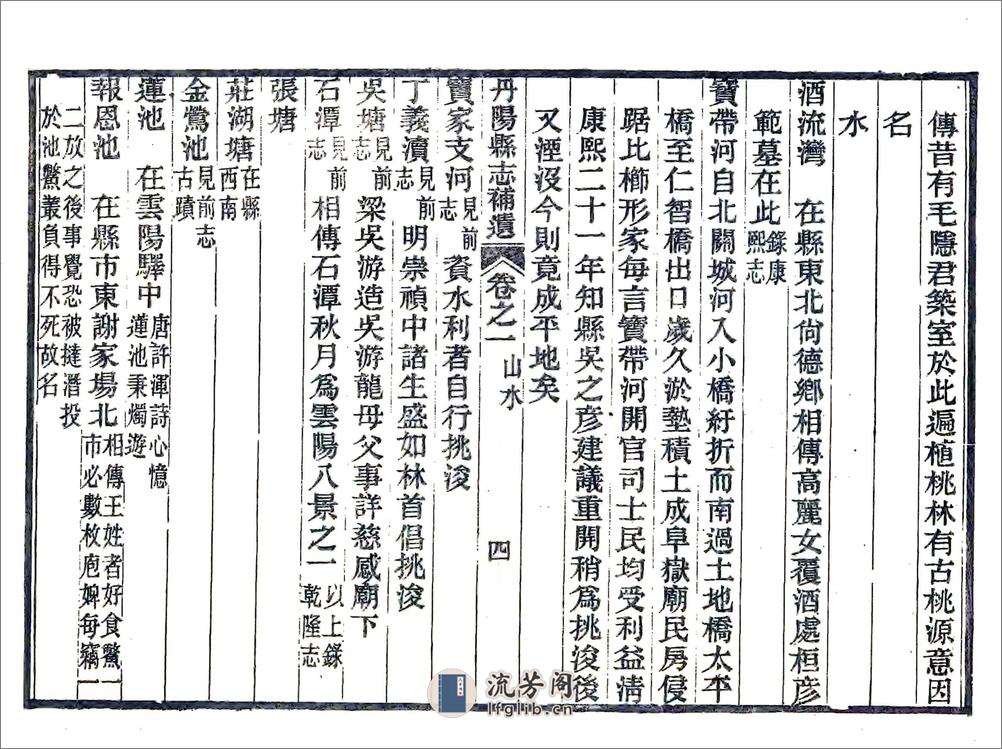 傳昔有毛隱君築室於此遍植桃林有古桃源意因
名
水
酒流灣　在縣東北尙德鄉相傳高麗女覆酒處桓彥
範墓在此錄康熙志
寶帶河自北關城河入小橋紆折而南過土地橋太平
橋至仁智橋出口歲久淤墊積土成阜獄廟民房侵
踞比櫛形家每言寶帶河開官司士民均受利益淸
康熙二十一年知縣吳之彥建議重開稍爲挑浚後
又湮沒今則竟成平地矣
丹陽縣志補遺　卷之一　山水　四
寶家支河見前志　資水利者自行挑浚
丁義瀆見前志　明崇禎中諸生盛如林首倡挑浚
吳塘見前志　梁吳游造吳游龍母父事詳慈感廟下
石潭見前志　相傳石潭秋月爲雲陽八景之一以上錄乾隆志
張塘
莊湖塘在縣西南
金鶯池見前志古蹟
蓮池　在雲陽驛中唐許渾詩心憶蓮池秉燭遊
報恩池　在縣市東謝家場北相傳王姓者好食鱉一市必數枚庖婢每竊一
二放之後事覺恐被撻潛投於池鱉叢負得不死故名
流芳阁
lfglib.cn